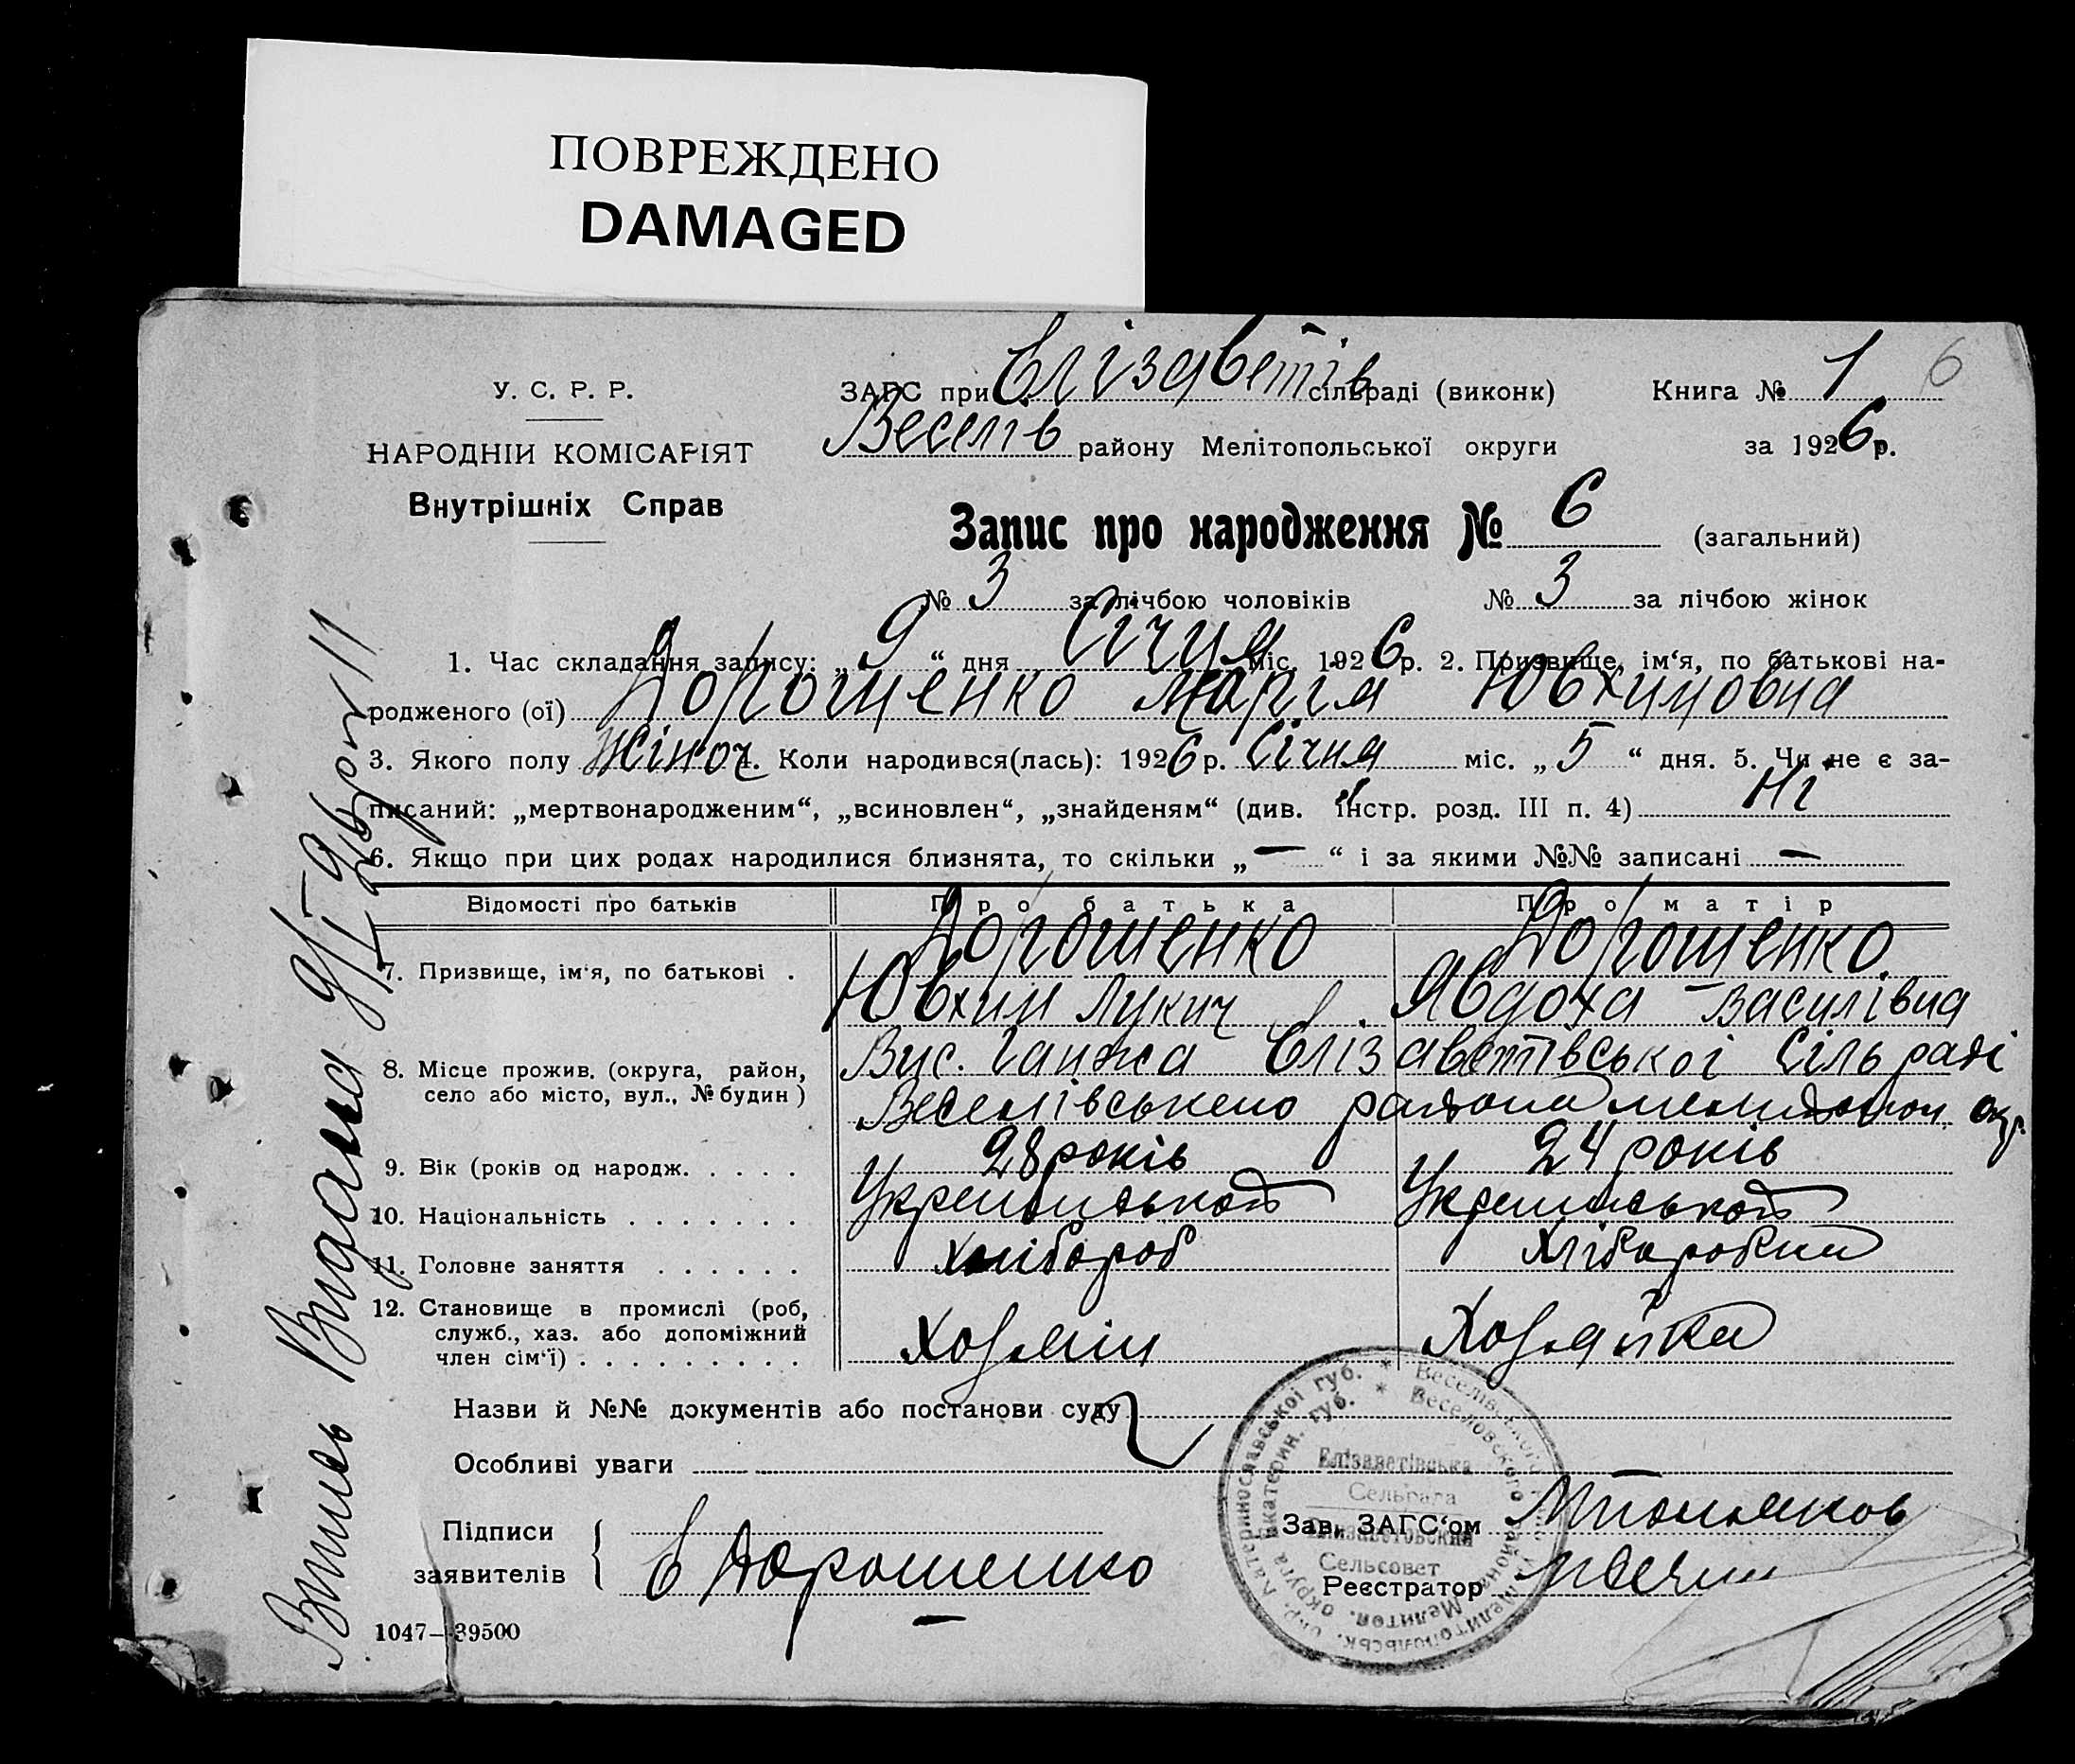 ПОВРЕЖДЕНО
DAMAGED
У. С. Р. Р.
НАРОДНІЙ КОМІСАРІЯТ
Внутрішніх Справ
ЗАГС при Єлізаветів сільраді (виконк) Книга № 1 6
Веселів району Мелітопольської округи за 1926 р.
Запис про народження № 6 (загальний)
№ 3 за лічбою чоловіків № 3 за лічбою жінок
1. Час складання запису: „ 9 “ дня Січня міс. 1926 р. 2. Призвище, ім‘я, по батькові на-
родженого (ої) Дорошенко Марія Ювхимовна
3. Якого полу Жіноч 4. Коли народився(лась): 1926 р. Січня міс. „ 5 “ дня. 5. Чи не є за-
писаний: „мертвонародженим“, „всиновлен“, „знайденям“ (див. інстр. розд. III п. 4) Ні
6. Якщо при цих родах народилися близнята, то скільки „ — “ і за якими №№ записані —
Відомості про батьків Про батька Про матір
Дорошенко Дорошенко
7. Призвище, ім‘я, по батькові . Ювхим Лукич Явдоха Василівна
8. Місце прожив. (округа, район, село або місто, вул., № будин) Вис. Ганжа Єлізаветівської Сільраді
Веселівського района округ.
9. Вік (років од народж. . . . . 28 років 24 років
10. Національність . . . . . . .
11. Головне заняття . . . . . . Хлібороб
12. Становище в промислі (роб, служб., хаз. або допоміжний член сім‘ї) . . . . . . . . . Хозяїн Хозяйка
Назви й №№ документів або постанови суду
Особливі уваги
Підписи
заявителів
Є Дорошенко
Зав. ЗАГС‘ом
Реєстратор
Елізаветівська
Сельрада
Елизаветовский
Сельсовет
1047—39500
Видана 9/I